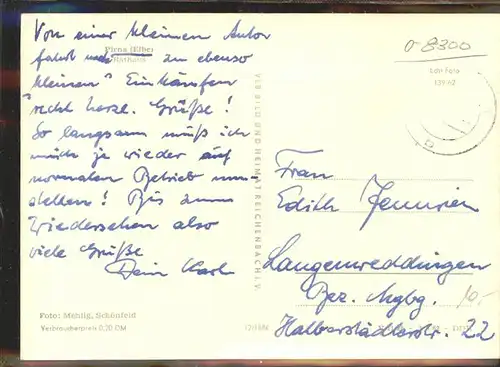 Von einer kleinen Auto
fahrt nach zu ebenso
Pirna (Elbe)
Rathaus
kleinen Einkäufen
recht herzl. Grüße!
So langsam muß ich
mich ja wieder auf
normalen Betrieb um-
stellen! Bis zum
Wiedersehen also
viele Grüße
Dein Karl
Foto: Mehlig, Schönfeld
Verbraucherpreis 0,20 DM
VEB BILD UND HEIMAT REICHENBACH I. V.
o-8300
Frau
Edith
Langenweddingen
Bez. Mgbg.
10,-
Halberstädterstr. 22